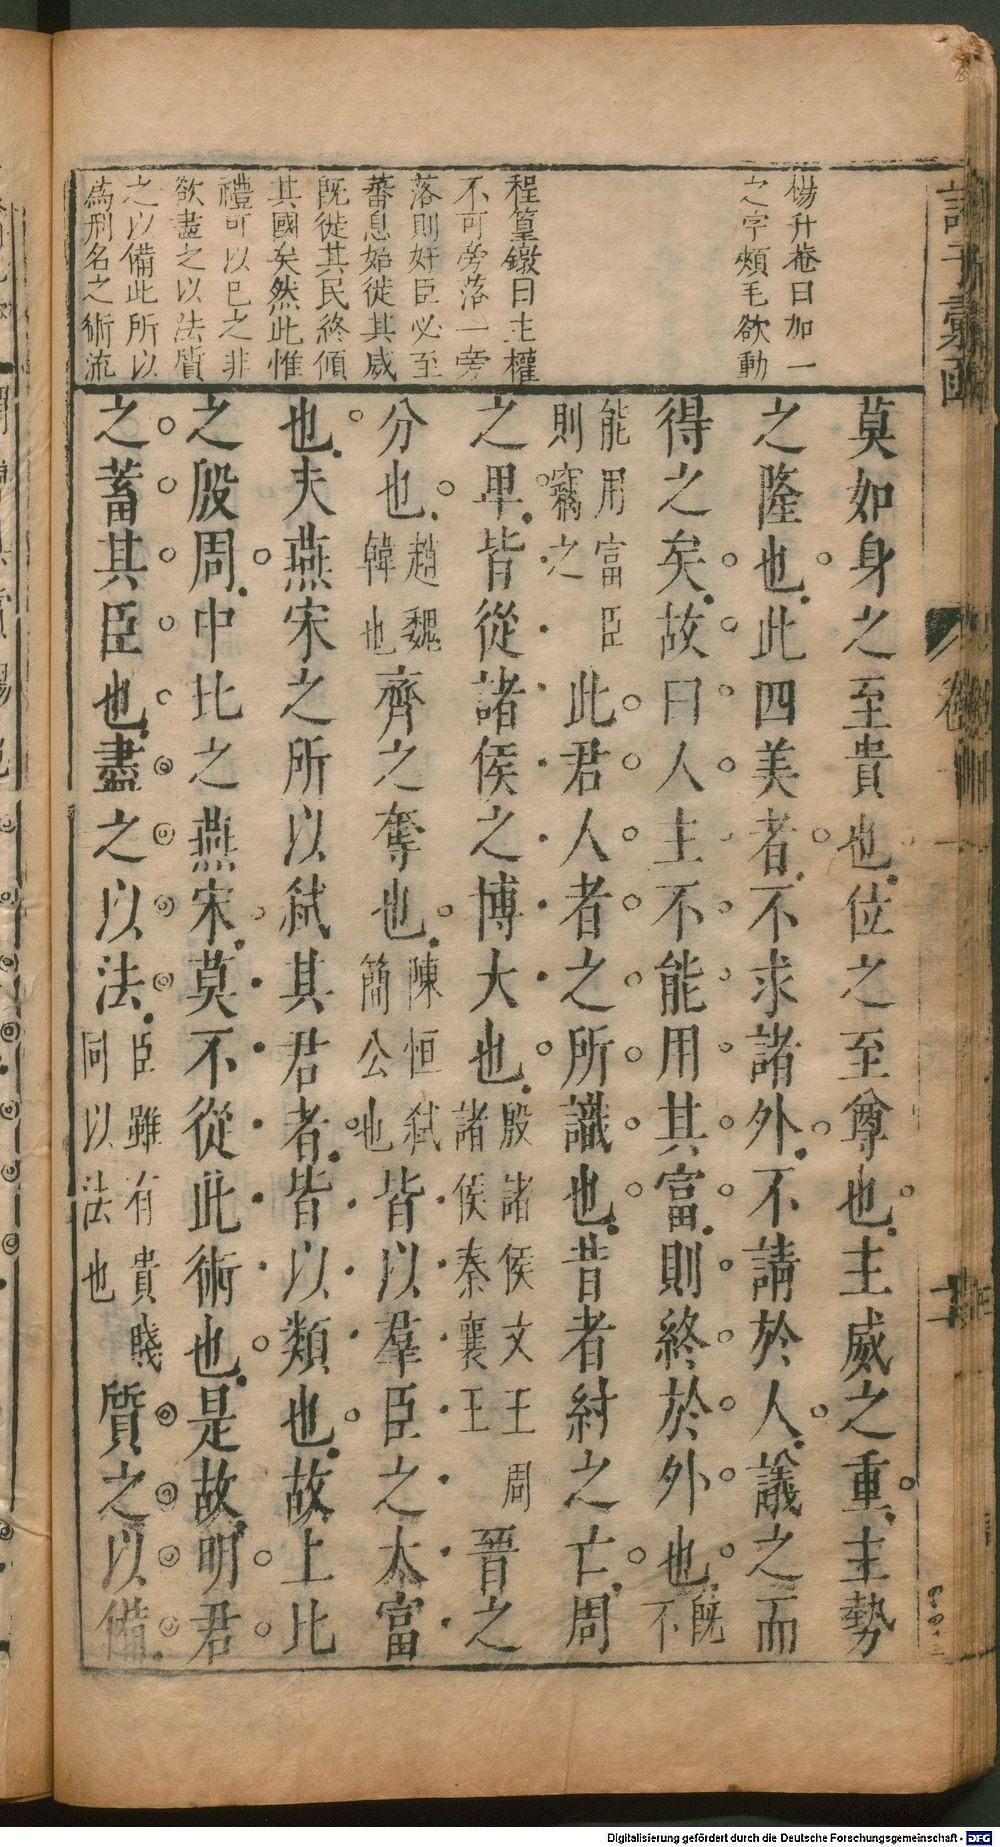 楊升菴曰加一
之字頰毛欲動
程篁墩曰主權
不可旁落一旁
落則奸臣必至
蕃息始徙其威
既徙其民終傾
其國矣然此惟
禮可以已之非
欲盡之以法質
之以備此所以
為刑名之術流
莫如身之至貴也位之至尊也主威之重主勢
之隆也此四美者不求諸外不請於人議之而
得之矣故曰人主不能用其富則終於外也既不
能用富臣則竊之此君人者之所識也昔者紂之亡周
之卑皆從諸侯之博大也殷諸侯文王周諸侯秦襄王晉之
分也趙魏韓也齊之奪也陳恒弒簡公也皆以羣臣之太富
也夫燕宋之所以弒其君者皆以類也故上比
之殷周中比之燕宋莫不從此術也是故明君
之蓄其臣也盡之以法臣雖有貴賤同以法也質之以備
卷
四百四十三
Digitalisierung gefördert durch die Deutsche Forschungsgemeinschaft - DFG